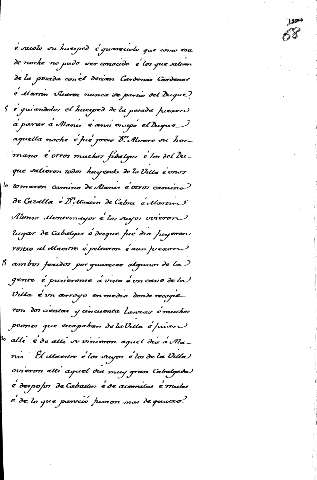 68
é sacólo su huesped é guareciólo que como era
de noche no pudo ser conocido é los que salian
de la posada con él decian Cardenas Cardenas
é Martin nunca se partió del Duque
5 é guiandolos el huesped de la posada fueron
á parar á Alanis é ansi escapó el Duque
aquella noche é fué preso Dn. Alvaro su her
mano é otros muchos fidalgos é los del Du
que salieron todos huyendo de la Villa é unos
10 tomaron camino de Alanis é otros camino
de Cazalla é Dn. Martin de Cordova é Martin
Alonso Montemayor é los suyos ovieron
lugar de Cabalgar é desque fué dia fuyeron
al Maestre é pelearon é aun fueron
15 ambos feridos por guarecer alguna de la
gente é pusieronse á vista á un cabo de la
Villa é un arroyo en medio donde recogie
ron doscientas y cincuenta Lanzas é muchos
peones que escapaban de la Villa é fueron
20 allí é de allí se vinieron aquel dia á Ala
nis. El Maestre é los suyos é los de la Villa
ovieron allí aquel dia muy gran Cabalgada
é despojos de Caballos é de acemilas é mulas
é de lo que pareció fueron mas de